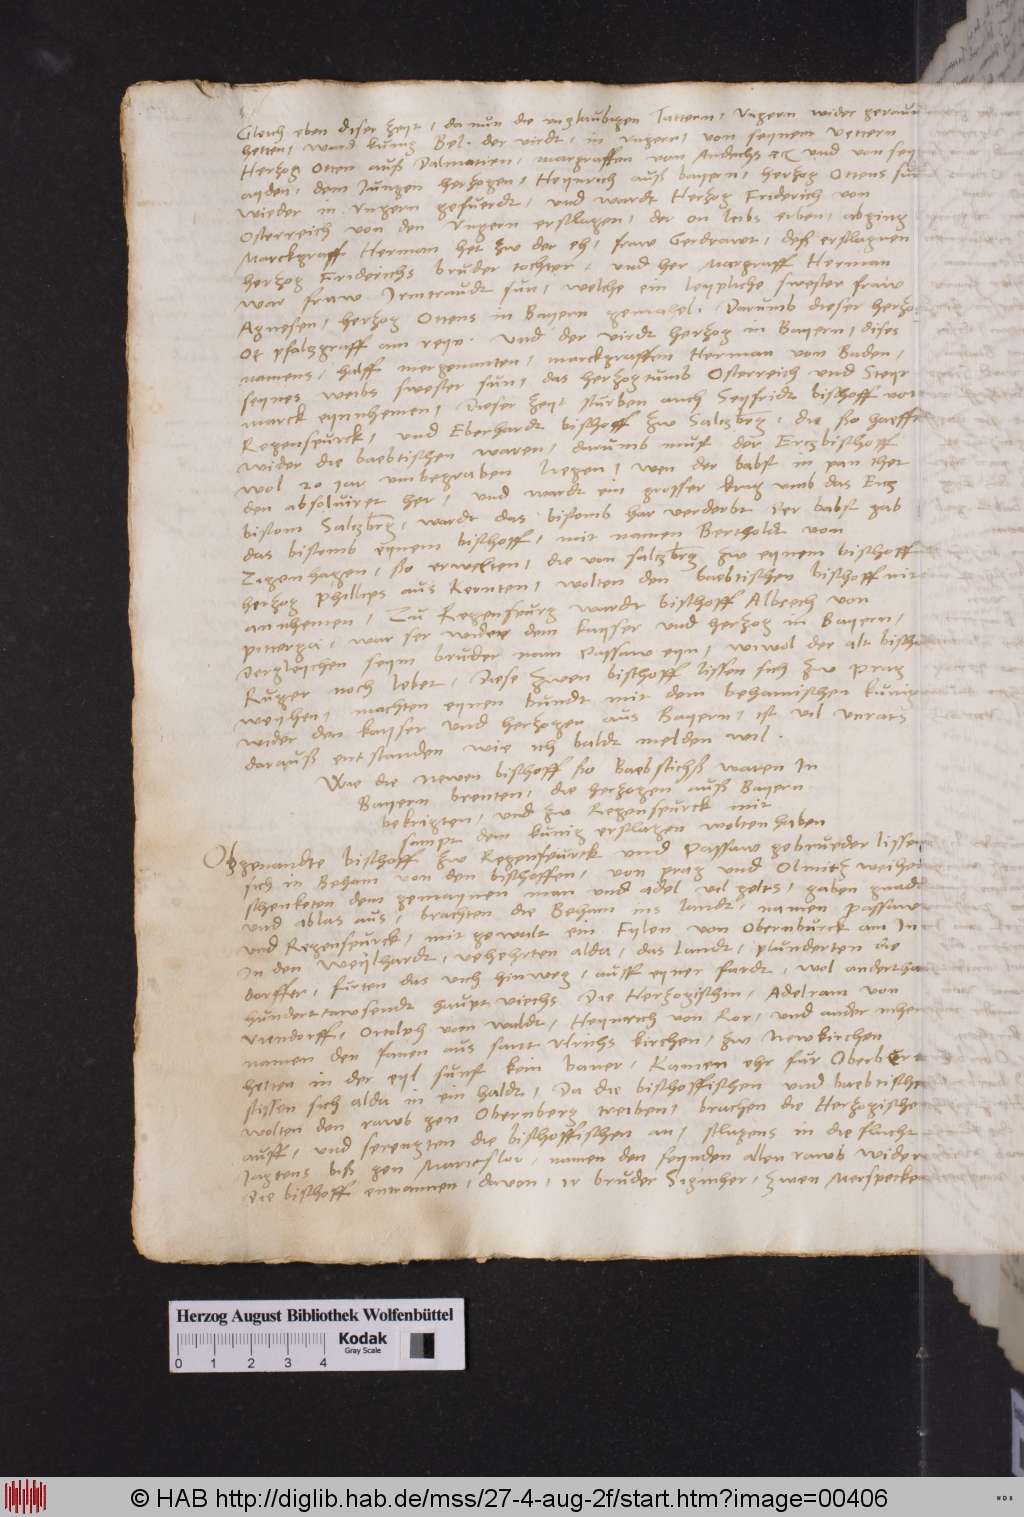 Gleich eben diser zeyt, da nun die unglaubigen Tattern, Ungern wider geraumt
hetten, ward kunig Bel. der virdt, in ungern, von seynem vettern
Herzog Otten auß Dalmatien, margraffen von Andechs und von sey
ayden, dem Jungen herzogen, Heynrich auß bayern, herzog Ottens sun
wieder in Ungern gefuerdt, und wardt Herzog Friderich von
Osterreich von den Ungern erslagen, der on leibs erben, abging
Marckgraff Herman het zw der eh, fraw Gerdrawt, deß erslagnen
herzog Friderichs bruder tochter, und her Margraff Herman
war fraw Irmtraudt sun, welche ein leypliche swester fraw
Agnesen, herzog Ottens in Bayern gemahel. Darumb dieser herzog
Ot pfaltzgraff am reyn. und der virdt herzog in Bayern, dises
namens, halff mergenanten, marckgraffen Herman von Baden,
seynes weibs swester sun, das herzogtumb Osterreich und Steyr
marck eynnhemen, Dieser zeyt sturben auch Seyfridt bischoff von
Regenspurck, und Eberhardt bischoff zw Saltzberg, die so haefft
wider die baebtischen waren, darumb must der Ertzbischoff
wol 20 jar unbegraben liegen, wen der babst in pan thet
den absoluiret her, und wardt ein grosser krieg umb das Ertz
bistom Saltzberg, wardt das bistomb har verderbt Der babst gab
das bistomb eynem bischoff, mit namen Bertholdt von
Zigenhagen, so erwelten, die von saltzberg zw eynem bischoff
herzog Phillips aus Kernten, wolten den baebtischen bischoff nit
annhemen, Zu Regenspurg wardt bischoff Albrech von
pitterga, war ser wider dem kayser und herzog in Bayern,
Dergleychen seym bruder nam Passaw eyn, wiwol der alt bisch
Ruger noch lebet, Diese zwen bischoff lissen sich zw prag
weyhen, machten eynen bundt mit dem behamischen kunig
wider den kayser und herzogen aus Bayern, ist vil unrats
darauß entstanden wie ich baldt melden wil.
Wie die newen bischoff so Baebstichß waren In
Bayern brenten, die herzogen auß Bayern
bekrigten, und zw Regenspurck mit
sampt dem kunig erslagen wolten haben
Obgenandte bischoff zw Regenspurck und Passaw gebrueder lissen
sich in Beham von den bischoffen, von prag und Olmutz weihen
schenketen dem gemaynen man und adel vil gelts, gaben gnadt
und ablas aus, brachten die Beham ins landt, namen Passaw
und Regenspurck, mit gewalt ein Fylen von Obernburck am In
In den Weylhardt, vehehrten alda, das landt, plunderten die
dorffer, furten das vich hinweg, auff eyner fardt, wol anderthalb
hundert tawsendt haupt viechs Die Herzogischin, Adelram von
Viendorff, Ortolph vom waldt, Heynrich von Ror, und ander mher
namen den fanen aus sant Ulrichs kirchen, zw Newkirchen
hetten in der eyl sunst kein baner, Kamen ehr fur Oberberg
stissen sich alda in ein haldt, Da die bischoffischen und baebtischen
wolten den rawb gen Obernberg treiben, brachen die Herzogischen
auff, und serengten die bischoffischen an, slagens in die flucht
Jagtens biß gen Mariaslor, namen den feynden allen rawb wider
Die bischoff entrannen, davon, ir bruder Sigmher, zwen Merspecken
Herzog August Bibliothek Wolfenbüttel
Kodak
Gray Scale
0 1 2 3 4
© HAB http://diglib.hab.de/mss/27-4-aug-2f/start.htm?image=00406